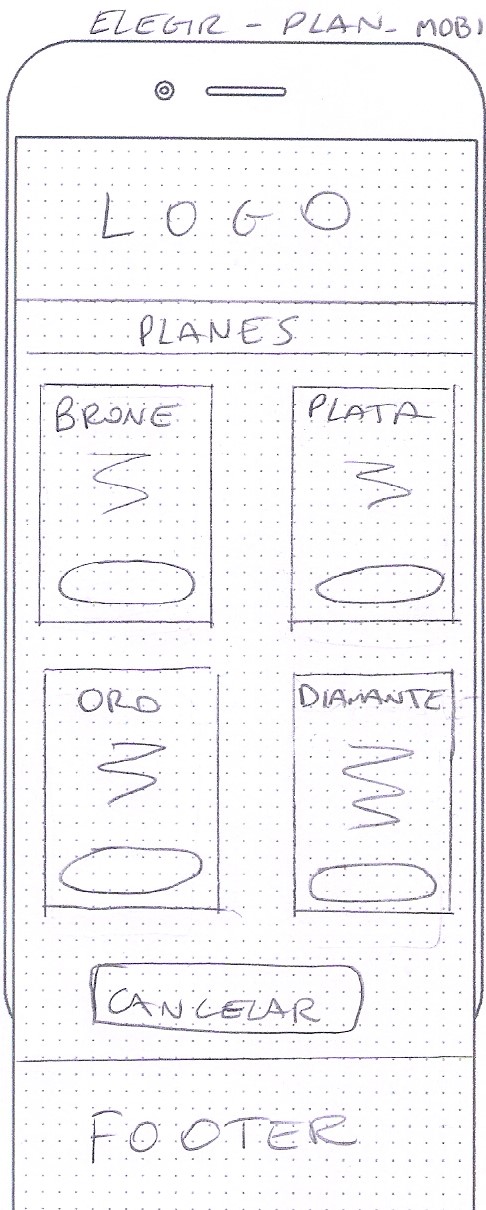 ELEGIR - PLAN - MOBI
LOGO
PLANES
BRONE
PLATA
ORO
DIAMANTE
CANCELAR
FOOTER